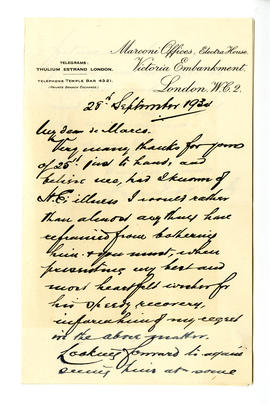 Marconi Offices, Electra House,
TELEGRAMS:
THULIUM ESTRAND LONDON.
Victoria Embankment,
TELEPHONE TEMPLE BAR 4321.
(PRIVATE BRANCH EXCHANGE.)
London. W.C.2.
28th September 1934
My dear de Marco.
Very many thanks for yours
of 26th just to hand, and
believe me, had I known of
H.E's illness I would rather
than almost anything have
refrained from bothering
him. & you must, when
presenting my best and
most heartfelt wishes for
his speedy recovery,
my regret
in the above matter.
Looking forward to again
seeing him at some